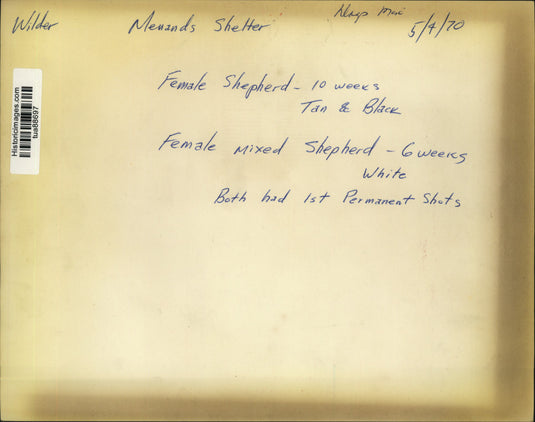 Wilder Menands Shelter 5/4/70
Female Shepherd - 10 weeks
Tan & Black
Female Mixed Shepherd - 6 weeks
White
Both had 1st Permanent Shots
Historicimages.com
tua88697